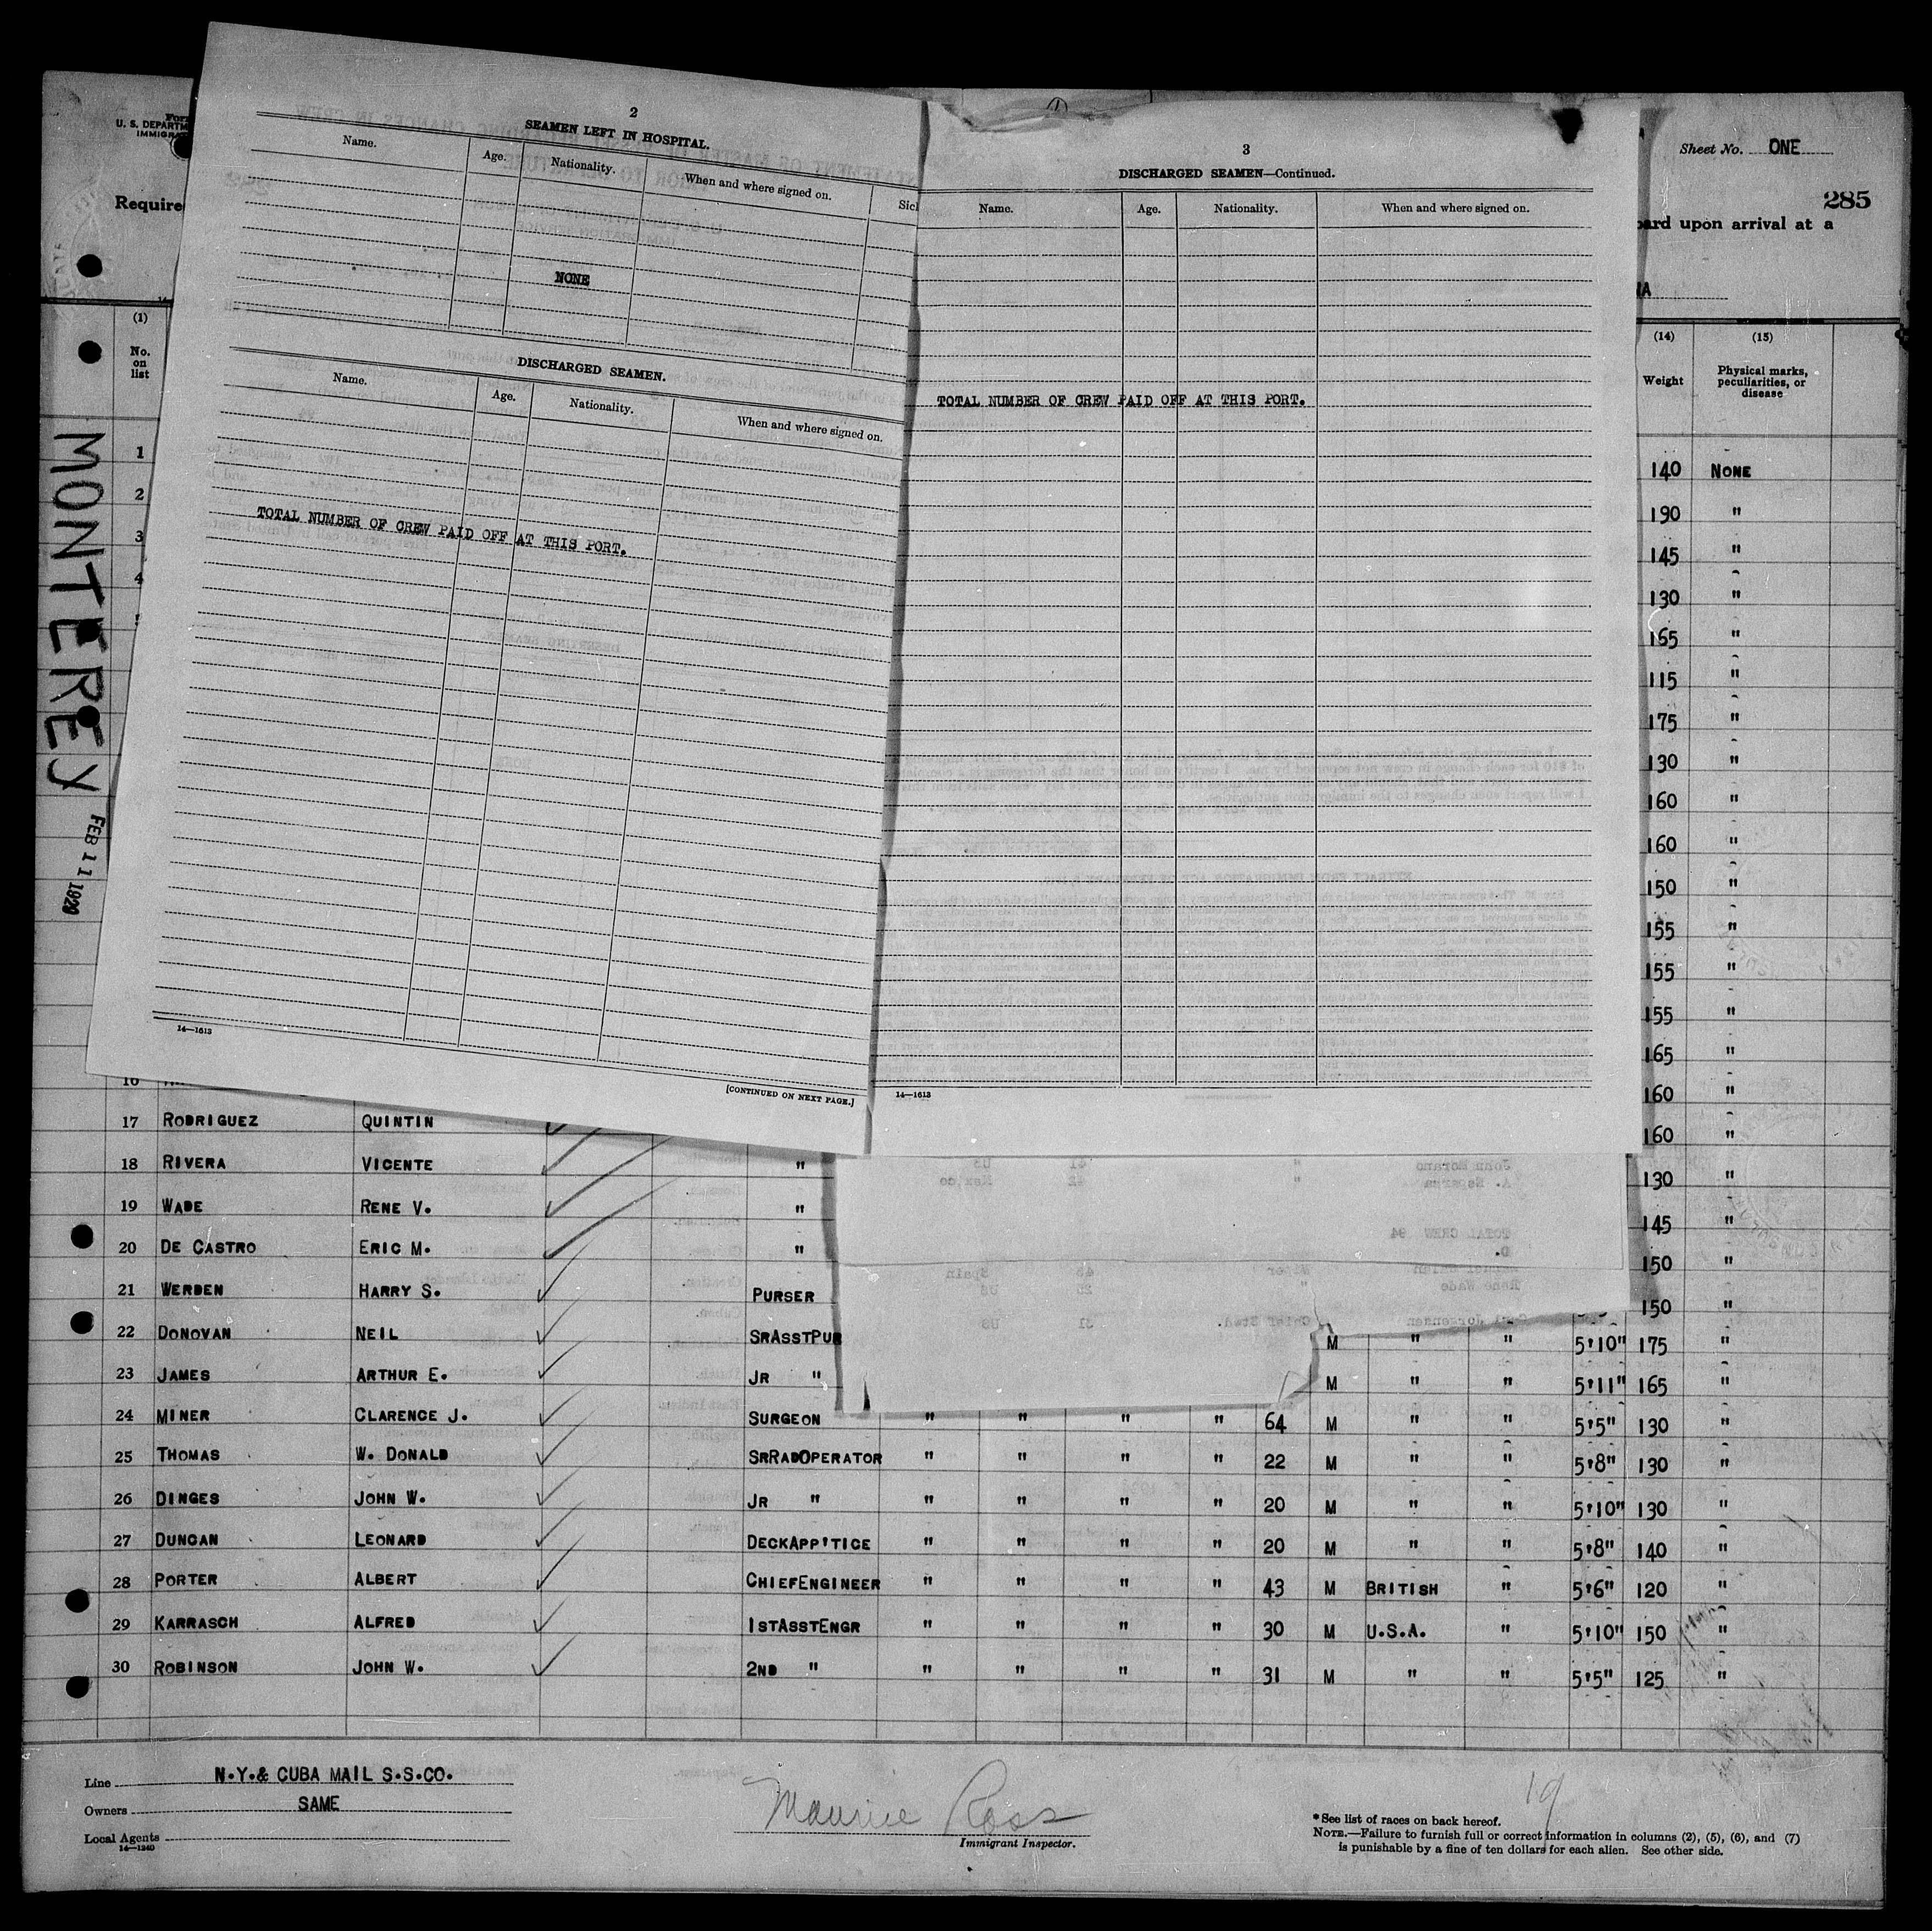 2
SEAMEN LEFT IN HOSPITAL.
Name. Age. Nationality. When and where signed on.
NONE
DISCHARGED SEAMEN.
Name. Age. Nationality. When and where signed on.
TOTAL NUMBER OF CREW PAID OFF AT THIS PORT.
14—1613
[CONTINUED ON NEXT PAGE.]
3
DISCHARGED SEAMEN—Continued.
Name. Age. Nationality. When and where signed on.
TOTAL NUMBER OF CREW PAID OFF AT THIS PORT.
14—1613
U. S. DEPARTM
IMMIGRA
Require
Sheet No. ONE
285
ard upon arrival at a
(1)
No. on list
(14)
Weight
(15)
Physical marks, peculiarities, or disease
MONTEREY
FEB 11 1929
1 140 NONE
2 190 "
3 145 "
4 130 "
165 "
115 "
175 "
130 "
160 "
160 "
150 "
155 "
155 "
155 "
165 "
16 160 "
17 RODRIGUEZ QUINTIN 160 "
18 RIVERA VICENTE " 130 "
19 WADE RENE V. " 145 "
20 DE CASTRO ERIC M. " 150 "
21 WERDEN HARRY S. PURSER 150 "
22 DONOVAN NEIL SRASSTPUR M " " 5'10" 175 "
23 JAMES ARTHUR E. JR " M " " 5'11" 165 "
24 MINER CLARENCE J. SURGEON " " " " 64 M " " 5'5" 130 "
25 THOMAS W. DONALD SRRADOPERATOR " " " " 22 M " " 5'8" 130 "
26 DINGES JOHN W. JR " " " " " 20 M " " 5'10" 130 "
27 DUNCAN LEONARD DECKAPP'TICE " " " " 20 M " " 5'8" 140 "
28 PORTER ALBERT CHIEFENGINEER " " " " 43 M BRITISH " 5'6" 120 "
29 KARRASCH ALFRED 1STASSTENGR " " " " 30 M U.S.A. " 5'10" 150 "
30 ROBINSON JOHN W. 2ND " " " " " 31 M " " 5'5" 125 "
Line N.Y.& CUBA MAIL S.S.CO.
Owners SAME
Local Agents
14—1240
Maurice Ross
Immigrant Inspector.
19
*See list of races on back hereof.
NOTE.—Failure to furnish full or correct information in columns (2), (5), (6), and (7)
is punishable by a fine of ten dollars for each alien. See other side.